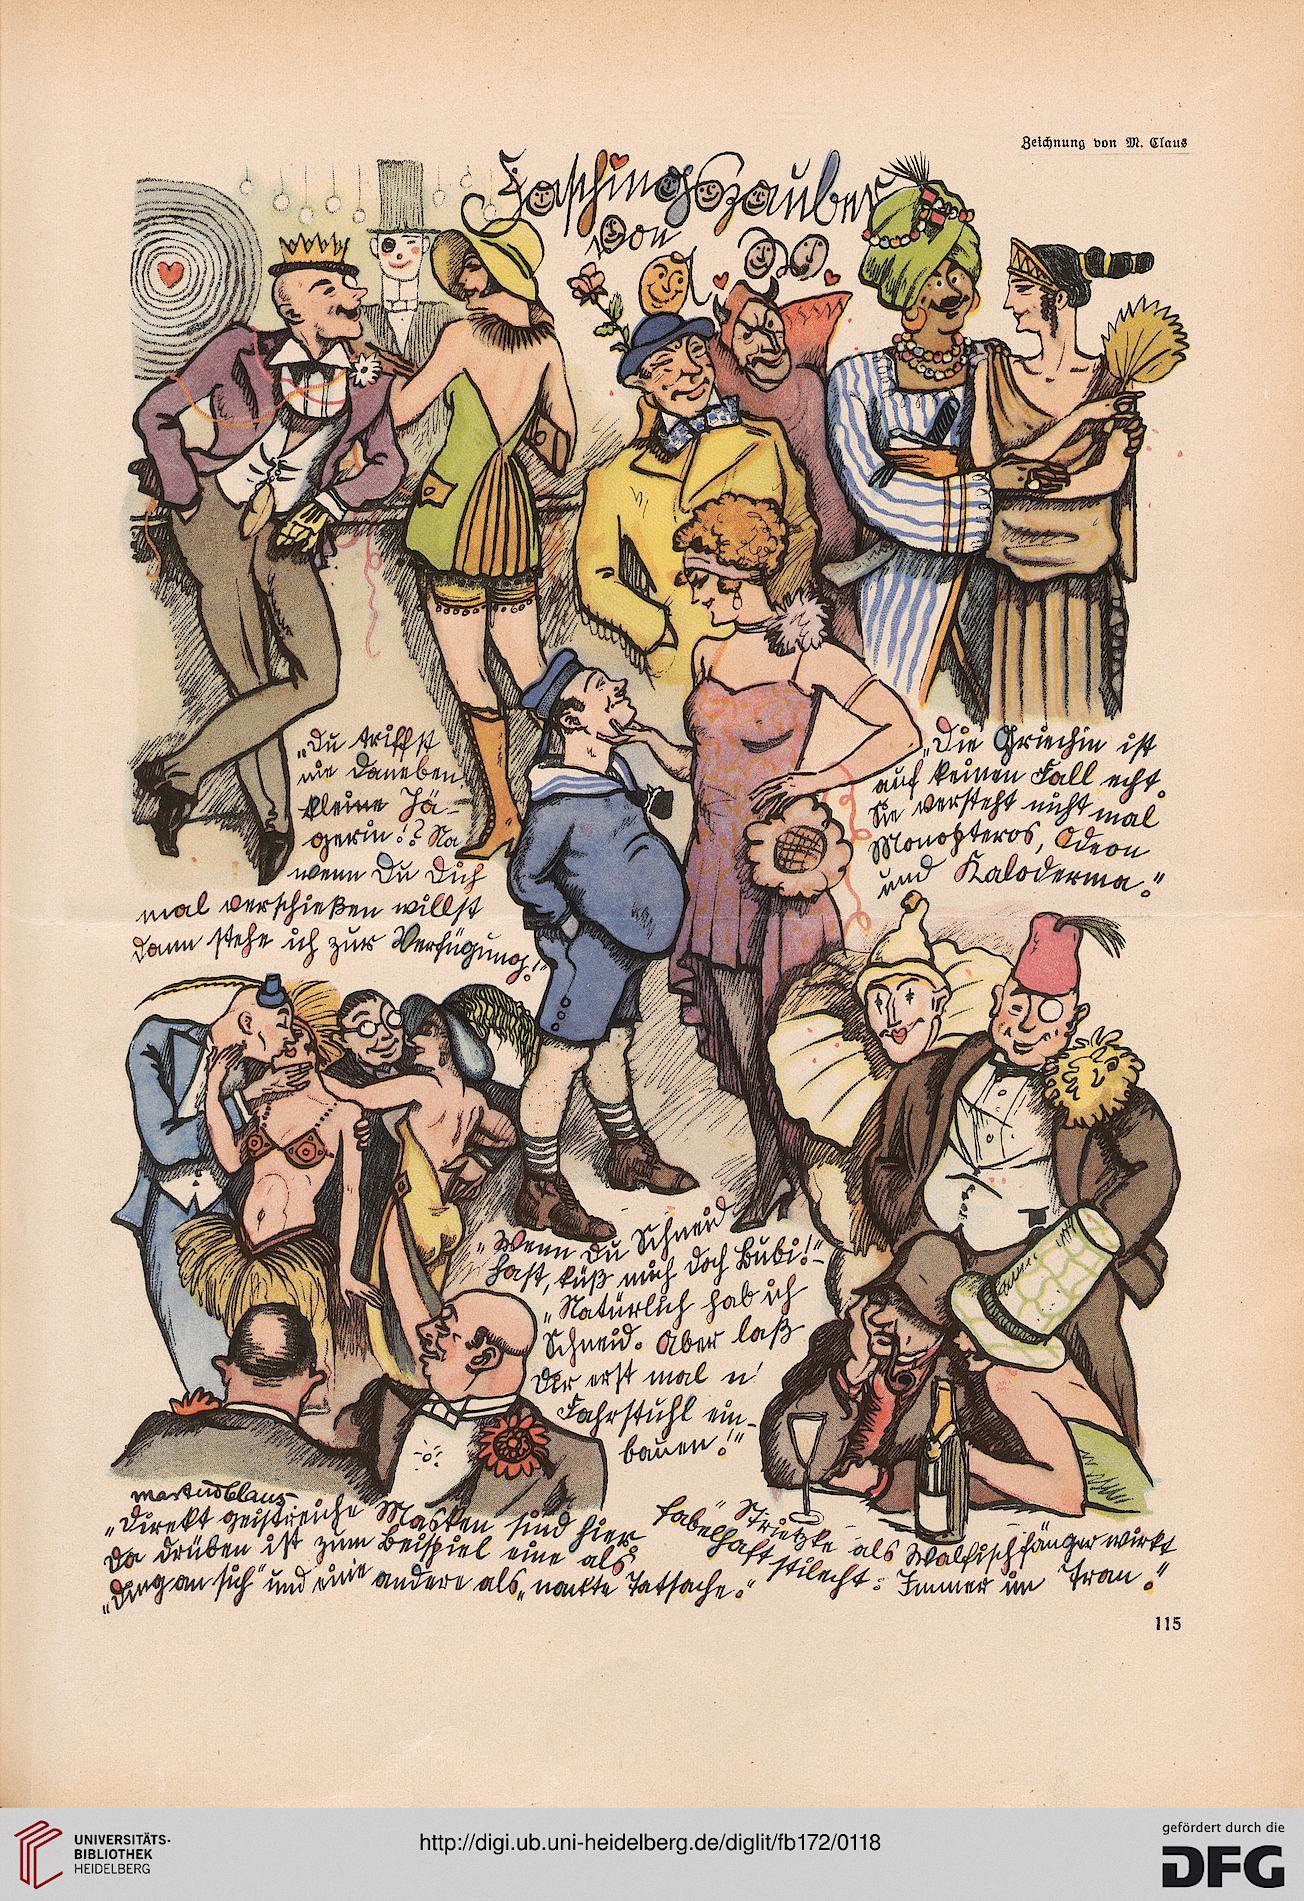 Zeichnung von M. Claus
Faschingszauber
von
„Du triffst
nie daneben
kleine Jä-
gerin!? Na
wenn Du Dich
mal verschießen willst
dann stehe ich zur Verfügung!"
„Die Griechin ist
auf keinen Fall echt.
Sie versteht nicht mal
Monopteros, Odeon
und Kaloderma."
„Wenn Du Schneid
hast, küß mich doch Bubi!" -
„Natürlich hab ich
Schneid. Aber laß
Dir erst mal n'
Fahrstuhl ein-
bauen!"
martin claus
„Direkt geistreiche Masken sind hier.
Da drüben ist zum Beispiel eine als
„Ding an sich" und eine andere als „nackte Tatsache."
„Strietzke als Walfischfänger wirkt
fabelhaft stilecht: Immer im Tran."
115
UNIVERSITÄTS-
BIBLIOTHEK
HEIDELBERG
http://digi.ub.uni-heidelberg.de/diglit/fb172/0118
gefördert durch die
DFG